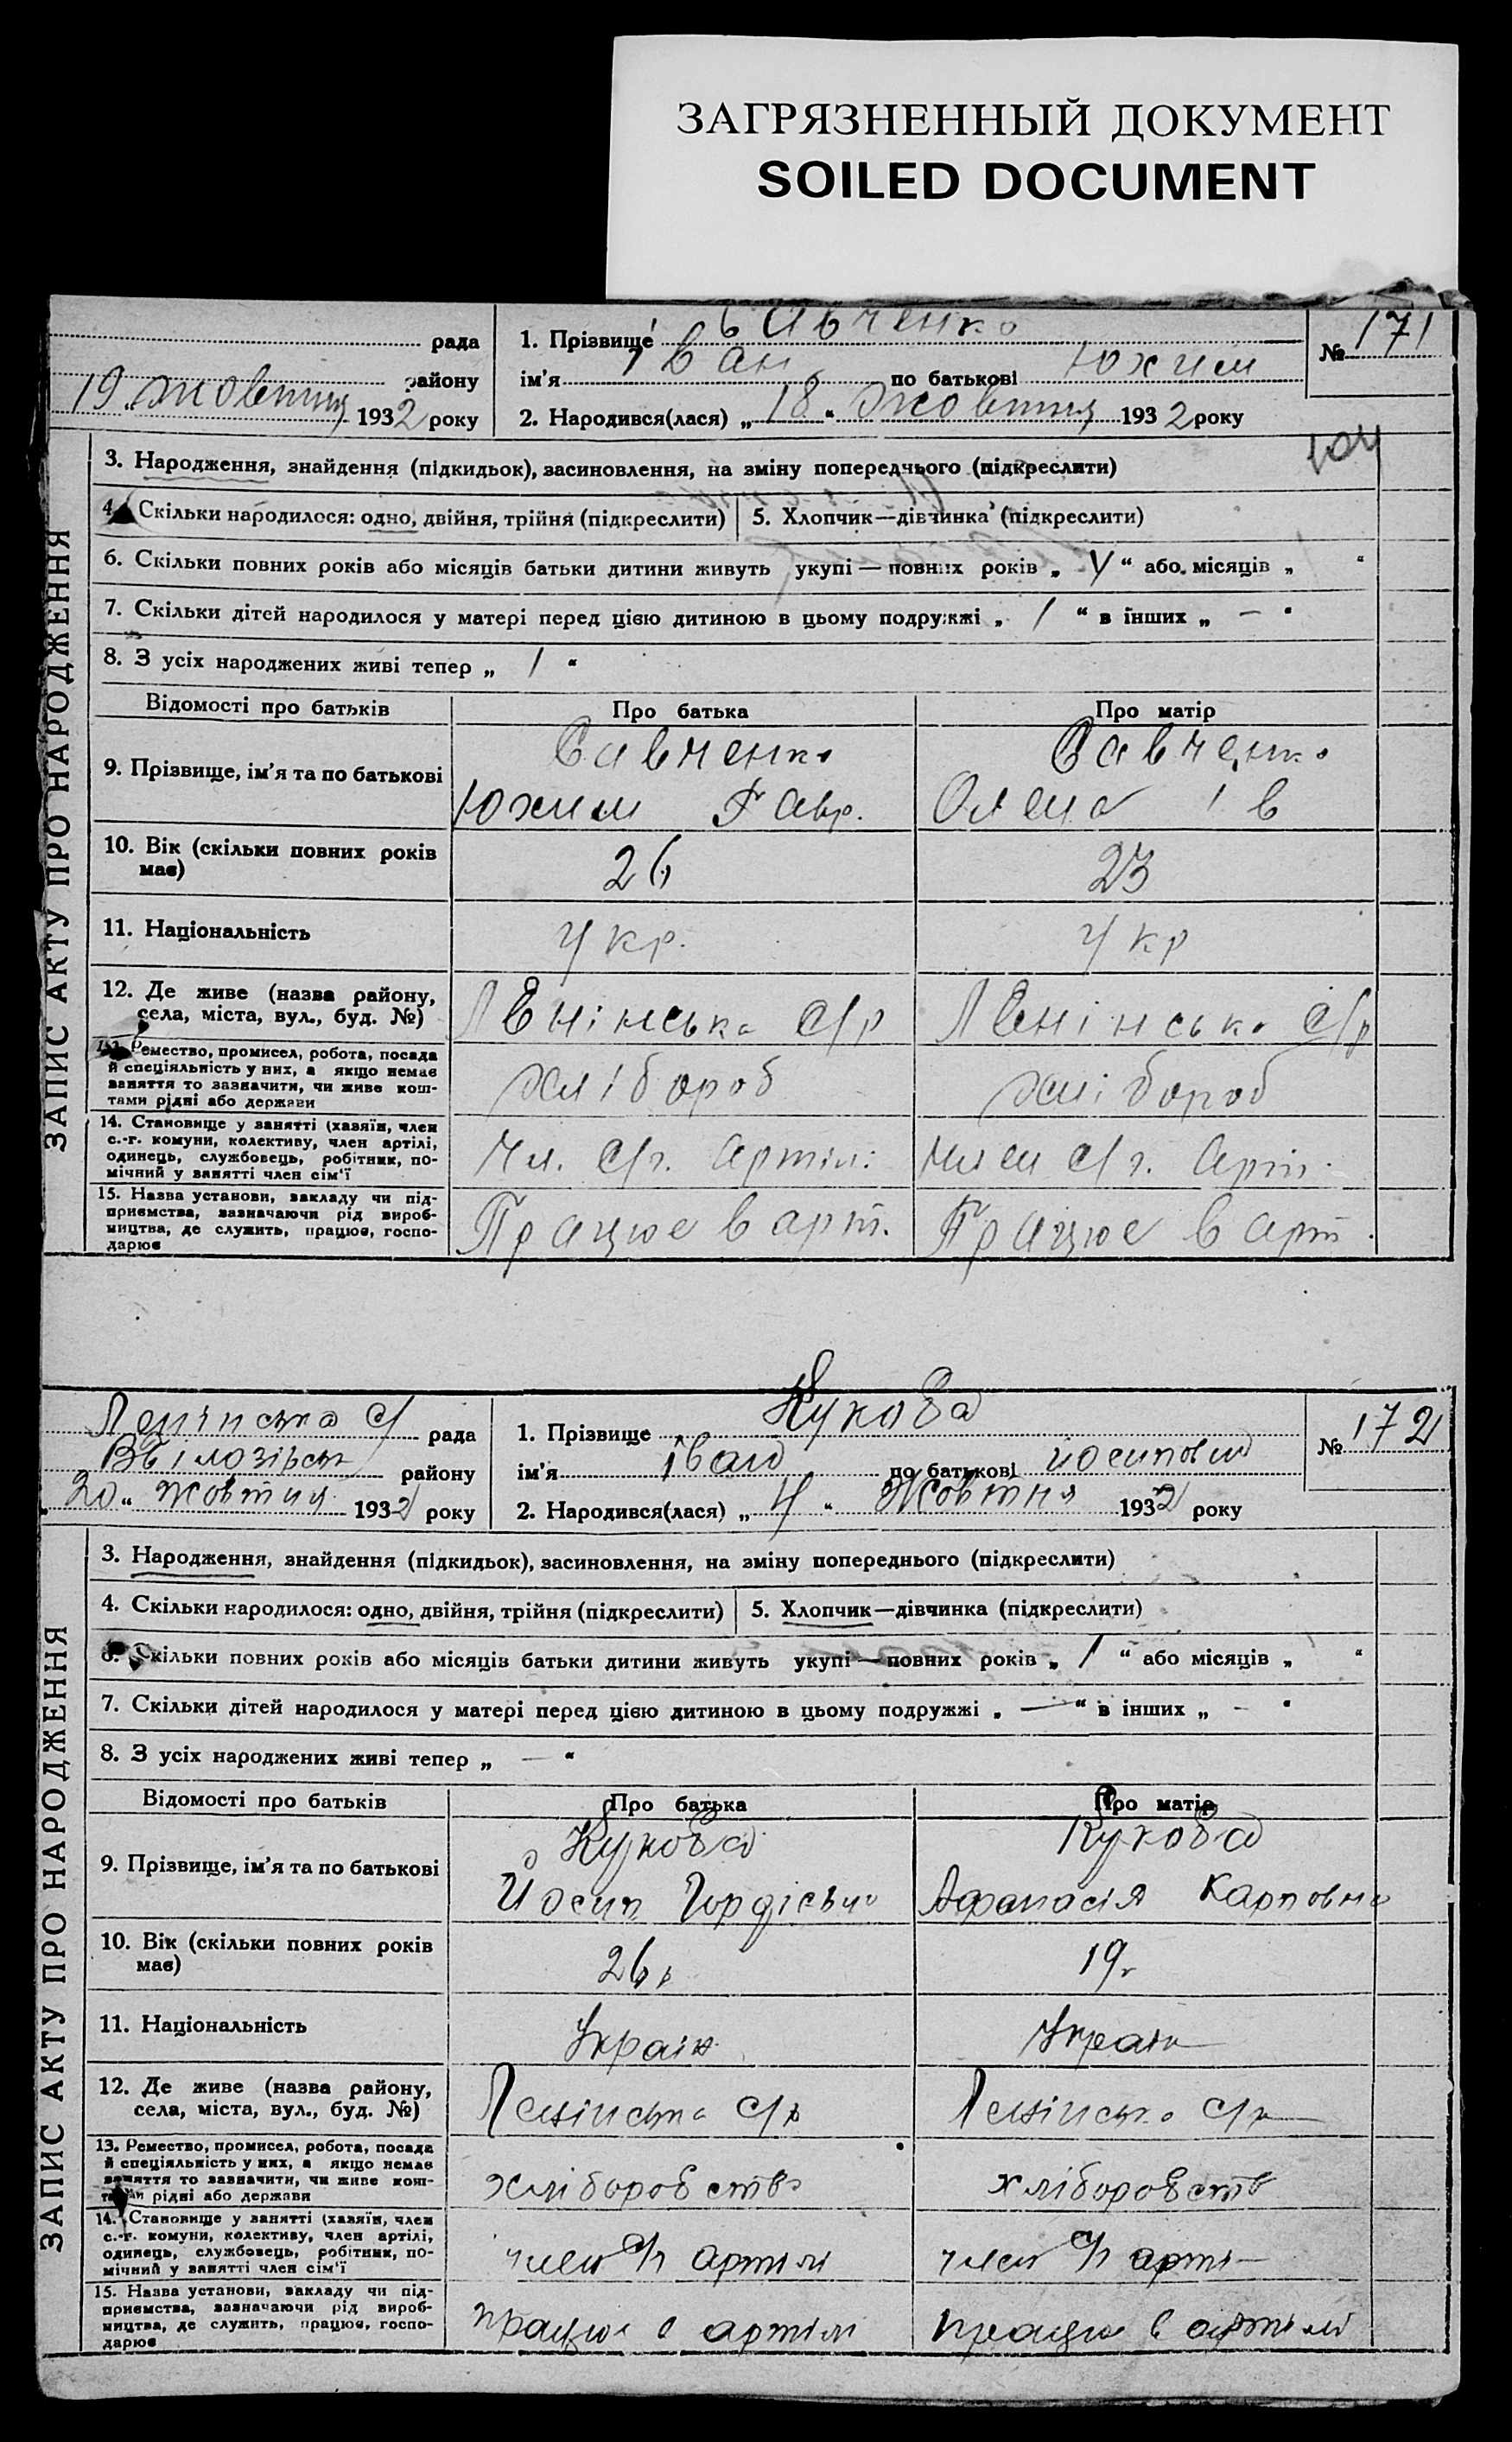 ЗАГРЯЗНЕННЫЙ ДОКУМЕНТ
SOILED DOCUMENT
ЗАПИС АКТУ ПРО НАРОДЖЕННЯ
рада
району
19 жовтня 1932 року
1. Прізвище Савченко
ім'я Іван по батькові Юхим
2. Народився(лася) „18“ жовтня 1932 року
№ 171
3. Народження, знайдення (підкидьок), засиновлення, на зміну попереднього (підкреслити)
4. Скільки народилося: одно, двійня, трійня (підкреслити) 5. Хлопчик—дівчинка (підкреслити)
6. Скільки повних років або місяців батьки дитини живуть укупі—повних років „ “ або місяців „ “
7. Скільки дітей народилося у матері перед цією дитиною в цьому подружжі „ 1 “ в інших „ — “
8. З усіх народжених живі тепер „ 1 “
Відомості про батьків Про батька Про матір
9. Прізвище, ім'я та по батькові Савченко Савченко
Юхим Гавр. Олена Ів
10. Вік (скільки повних років має) 26 23
11. Національність Укр. Укр
12. Де живе (назва району, села, міста, вул., буд. №) Ленінська С/р Ленінська С/р
13. Ремество, промисел, робота, посада
й спеціяльність у них, а якщо немає
заняття то зазначити, чи живе кош-
тами рідні або держави
хлібороб хлібороб
14. Становище у занятті (хазяїн, член
с.-г. комуни, колективу, член артілі,
одинець, службовець, робітник, по-
мічний у занятті член сім'ї
Чл. С/г. артілі член С/г. Арт.
15. Назва установи, закладу чи під-
приємства, зазначаючи рід вироб-
ництва, де служить, працює, госпо-
дарює
Працює в арт. Працює в арт.
ЗАПИС АКТУ ПРО НАРОДЖЕННЯ
Ленінська С/ рада
Вбілозірськ району
20 „ жовтня 1932 року
1. Прізвище Кукоба
ім'я Іван по батькові Йосипович
2. Народився(лася) „4“ Жовтня 1932 року
№ 172
3. Народження, знайдення (підкидьок), засиновлення, на зміну попереднього (підкреслити)
4. Скільки народилося: одно, двійня, трійня (підкреслити) 5. Хлопчик—дівчинка (підкреслити)
6. Скільки повних років або місяців батьки дитини живуть укупі—повних років „ 1 “ або місяців „ “
7. Скільки дітей народилося у матері перед цією дитиною в цьому подружжі „ — “ в інших „ — “
8. З усіх народжених живі тепер „ — “
Відомості про батьків Про батька Про матір
9. Прізвище, ім'я та по батькові Кукоба Кукоба
Йосип Гордієвич Афанасія Карповна
10. Вік (скільки повних років має) 26 р 19 р
11. Національність Україн Україн
12. Де живе (назва району, села, міста, вул., буд. №) Ленінська С/р Ленінська С/р
13. Ремество, промисел, робота, посада
й спеціяльність у них, а якщо немає
заняття то зазначити, чи живе кош-
тами рідні або держави
хліборобство хліборобство
14. Становище у занятті (хазяїн, член
с.-г. комуни, колективу, член артілі,
одинець, службовець, робітник, по-
мічний у занятті член сім'ї
член С/г артілі член С/г арті
15. Назва установи, закладу чи під-
приємства, зазначаючи рід вироб-
ництва, де служить, працює, госпо-
дарює
працює в артілі працює в артілі